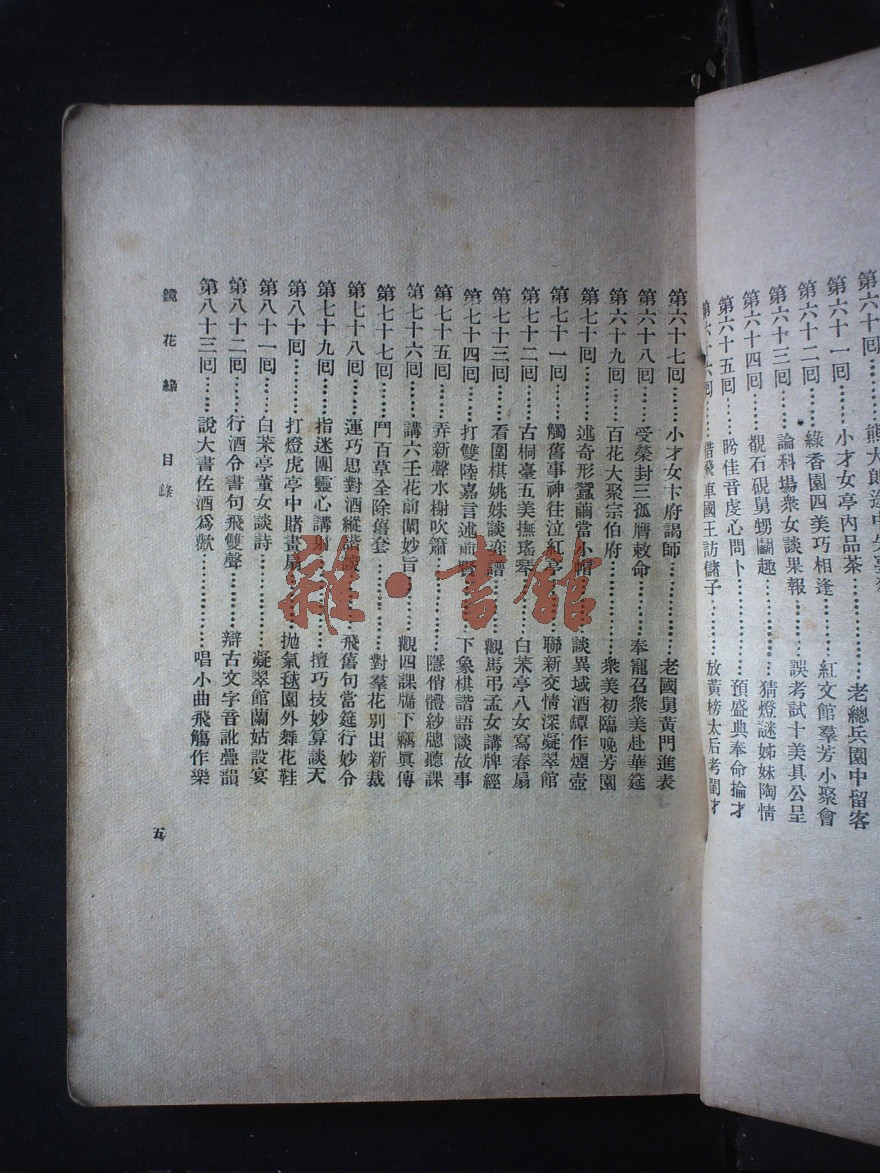 第六十回……熊大郎
老總兵園中留客
第六十一回……小才女亭內品茶……老總兵園中留客
第六十二回……綠香園四美巧相逢……紅文館羣芳小聚會
第六十三回……論科場衆女談果報……誤考試十美具公呈
第六十四回……覩石硯舅甥鬭趣……猜燈謎姊妹陶情
第六十五回……盻佳音虔心問卜……預盛典奉命掄才
第六十六回……借飛車國王訪儲子……放黃榜太后考閨才
第六十七回……小才女卞府謁師……老國舅黃門進表
第六十八回……受榮封三孤膺敕命……奉寵召衆美赴華筵
第六十九回……百花大聚宗伯府……衆美初臨晚芳園
第七十回……述奇形蠶繭當小帽……談異域酒罈作煙壺
第七十一回……觸舊事神往泣紅亭……聯新交情深凝翠館
第七十二回……古桐臺五美撫瑤琴……白茉亭八女寫春扇
第七十三回……看圍棋姚姝談弈譜……觀馬弔孟女講牌經
第七十四回……打雙陸嘉言述前賢……下象棋諧語談故事
第七十五回……弄新聲水榭吹簫……隱俏體紗牕聽課
第七十六回……講六壬花前闡妙旨……觀四課牖下竊眞傳
第七十七回……鬥百草全除舊套……對羣花別出新裁
第七十八回……運巧思對酒縱諧談……飛舊句當筵行妙令
第七十九回……指迷團靈心講射……擅巧技妙算談天
第八十回……打燈虎亭中賭畫扇……拋氣毬園外舞花鞋
第八十一回……白茉亭董女談詩……凝翠館蘭姑設宴
第八十二回……行酒令書句飛雙聲……辯古文字音訛疊韻
第八十三回……說大書佐酒爲歡……唱小曲飛觴作樂
鏡花緣 目錄
五
雜·書館